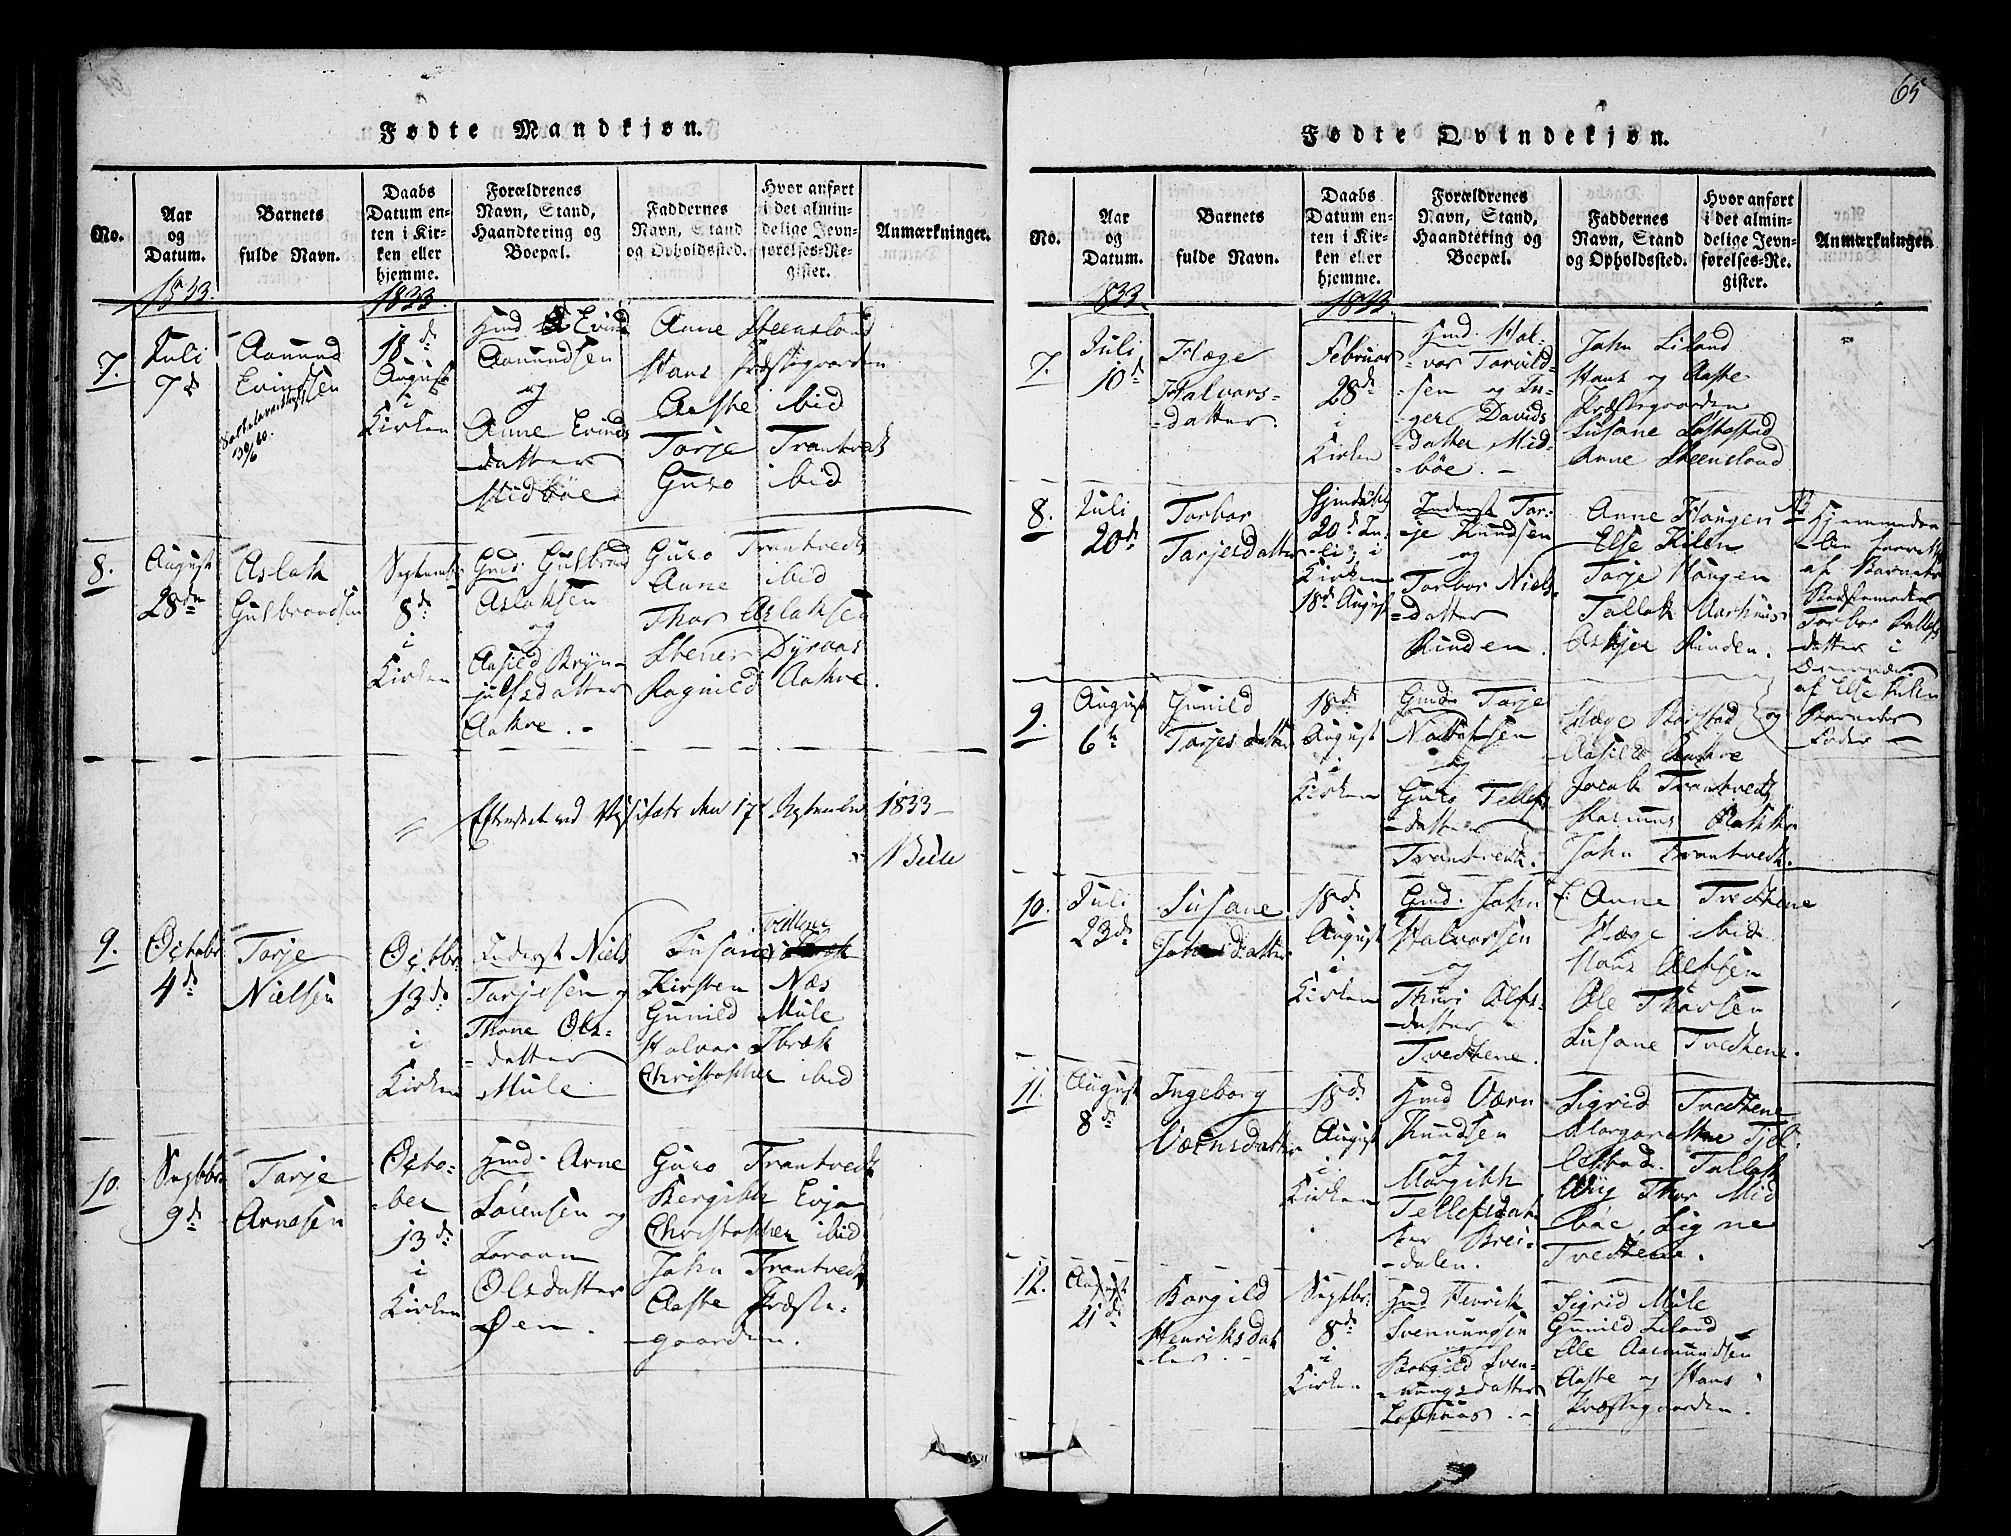 Fødte Mandkjøn.
No.
Aar
og
Datum.
Barnets
fulde Navn.
Daabs
Datum en-
ten i Kir-
ken eller
hjemme.
Forældrenes
Navn, Stand,
Haandtering og
Boepæl.
Faddernes
Navn, Stand
og Opholdssted.
Hvor anført
i det almin-
delige Jevn-
førelses-Re-
gister.
Anmærkninger.
1833.
1833.
7.
Juli
7d
Aamund
Evindsen
18d
August
i
Kirken
Gmd Evind
Aamundsen
og
Anne Evinds
datter
Midbøe
Anne Steensland
Hans Præstegaarden
Aaste ibid
Tarje Trantvedt
Guro ibid
8.
August
28de
Aslak
Gulbrandsen
September
8d
i
Kirken
Gmd. Gulbrand
Aslaksen
og
Aasild Bryn-
julfsdatter
Aakre. -
Guro Trantvedt
Anne ibid
Thor Aslaksen
Stener Dyraas
Ragnild Aakre.
Efterseet ved Visitats den 17 September 1833 -
9.
Octobr
4d
Tarje
Nielsen
Octbr.
13d
i
Kirken
Inderst Niels
Tarjesen og
Thone Ols-
datter
Mule.
Susane
Kirsten Næs
Gunild Mule
Halvor Bræk
Christopher ibid
10.
Septbr
9d
Tarje
Arnesen
Octo-
ber
13d
i
Kirken
Gmd. Arne
Sörensen og
Joraan
Olsdatter
Øen.
Guro Trantvedt
Bergith Evja
Christopher ibid
John Trantvedt
Aaste Præste-
gaarden.
65
Fødte Qvindekjøn.
No.
Aar
og
Datum.
Barnets
fulde Navn.
Daabs
Datum en-
ten i Kir-
ken eller
hjemme.
Forældrenes
Navn, Stand,
Haandtering og
Boepæl.
Faddernes
Navn, Stand
og Opholdssted.
Hvor anført
i det almin-
delige Jevn-
førelses-Re-
gister.
Anmærkninger.
833.
1833
7.
Juli
10d
Hæge
Halvors-
datter.
Februar
28d
i
Kirken
Gmd. Hal-
vor Tarvild-
sen og In-
ger Davids
datter Mid-
bøe. -
John Liland
Hans og Aaste
Præstegaarden
Susane
Anne Steensland
8.
Juli
20d
Torbor
Tarjesdatter
Hjemdöbt
20d Ju-
li, i
Kirken
18d August
Inderst Tar-
je Knudsen
og
Torbor Niels-
datter
Rinden.
Anne Haugen
Else Kilen
Tarje Haugen
Tallak Aarhuus
Askjer Rinden.
Hjemmedaa-
ben forrettet
af Barnets
Torbor
datter i
af Else Kilen
Barnets
Fader -
9.
August
6te
Gunild
Tarjes datter
18d
August
i
Kirken
Gmd. Tarje
og
Guro Tellefs
datter
Trantvedt.
Hæge Barstad og
Aasild Aakre
Jacob Trantvedt
Rasmus
John Trantvedt.
10.
Juli
23d
Susane
Johnsdatter
18d
August
i
Kirken
Gmd. John
Halvorsen
og
Thuri Olefs-
datter
Tvedtene.
Anne Tvedtene
Hæge ibid.
Hans Olefsen
Ole Thorsen
Susane Tvedtene.
11.
August
8d
Ingeborg
Værnsdatter
18d
August
i
Kirken
Gmd Værn
Knudsen
og
Margith
Tellefsdat-
ter Brei-
dalen.
Sigrid Tvedtene
Margarethe Tjel-
Tallak
Wiig Thor Mid
böe, Signe
Tvedtene.
12.
August
21d
Borgild
Henriksdat
ter. -
Septbr.
8d
i
Kirken
Gmd Henrik
Svennungsen
og
Borgild Sven-
nungsdatter
Lofthuus. -
Sigrid Mule
Gunild Liland
Ole Aasmundsen
Aaste og Hans
Præstegaarden.